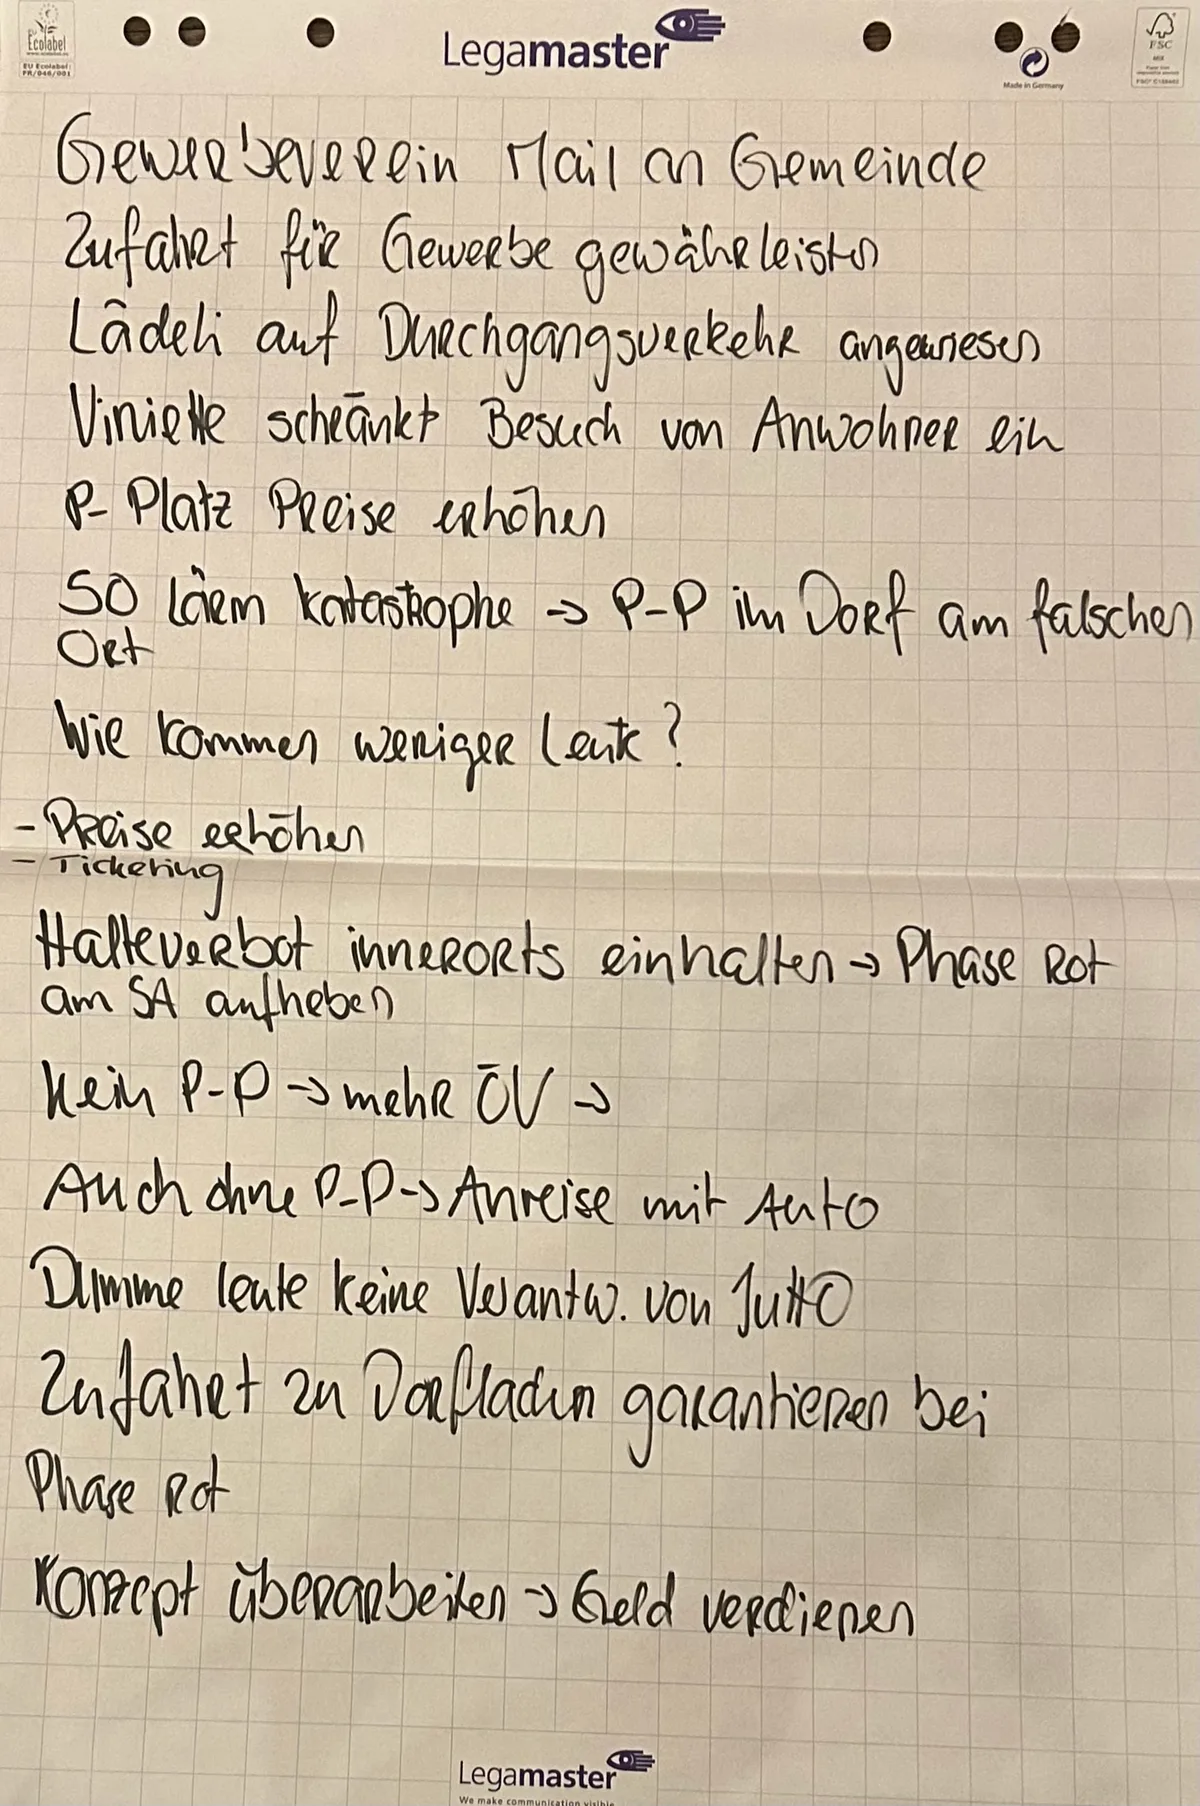 Ecolabel
www.ecolabel.eu
EU Ecolabel:
FR/046/001
Legamaster
Made in Germany
FSC
MIX
Gewerbeverein Mail an Gemeinde
Zufahrt für Gewerbe gewährleisten
Lädeli auf Durchgangsverkehr angewiesen
Viniette schränkt Besuch von Anwohner ein
P- Platz Preise erhöhen
SO Lärm Katastrophe → P-P im Dorf am falschen
Ort
Wie kommen weniger Leute?
- Preise erhöhen
- Ticketing
Halteverbot innerorts einhalten → Phase Rot
am SA aufheben
Kein P-P → mehr ÖV →
Auch ohne P-P → Anreise mit Auto
Dumme Leute keine Verantw. von JuttO
Zufahrt zu Dorfladen garantieren bei
Phase Rot
Konzept überarbeiten → Geld verdienen
Legamaster
We make communication visible